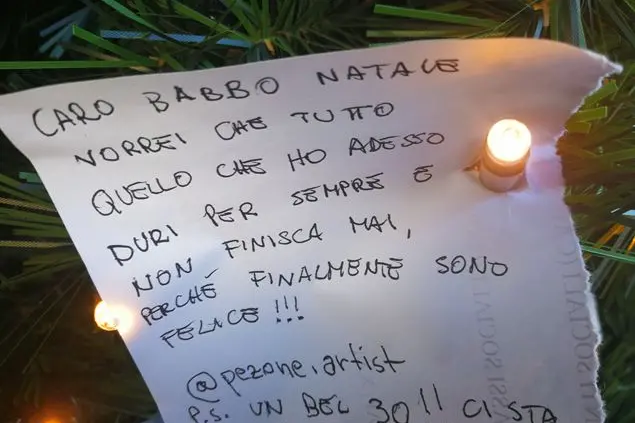 CARO BABBO NATALE
VORREI CHE TUTTO
QUELLO CHE HO ADESSO
DURI PER SEMPRE E
NON FINISCA MAI,
PERCHÉ FINALMENTE SONO
FELICE!!!
@pezone.artist
P.S. UN BEL 30!! CI STA